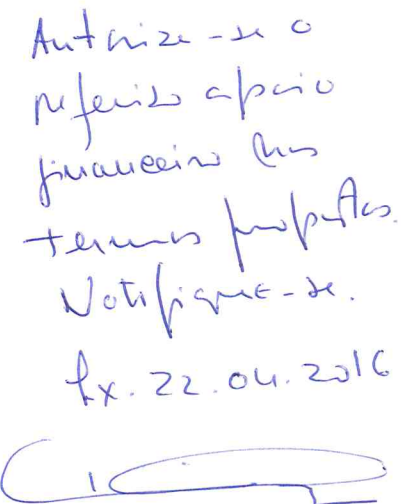 Autorize-se o
referido apoio
financeiro nos
termos propostos.
Notifique-se.
Lx. 22.04.2016